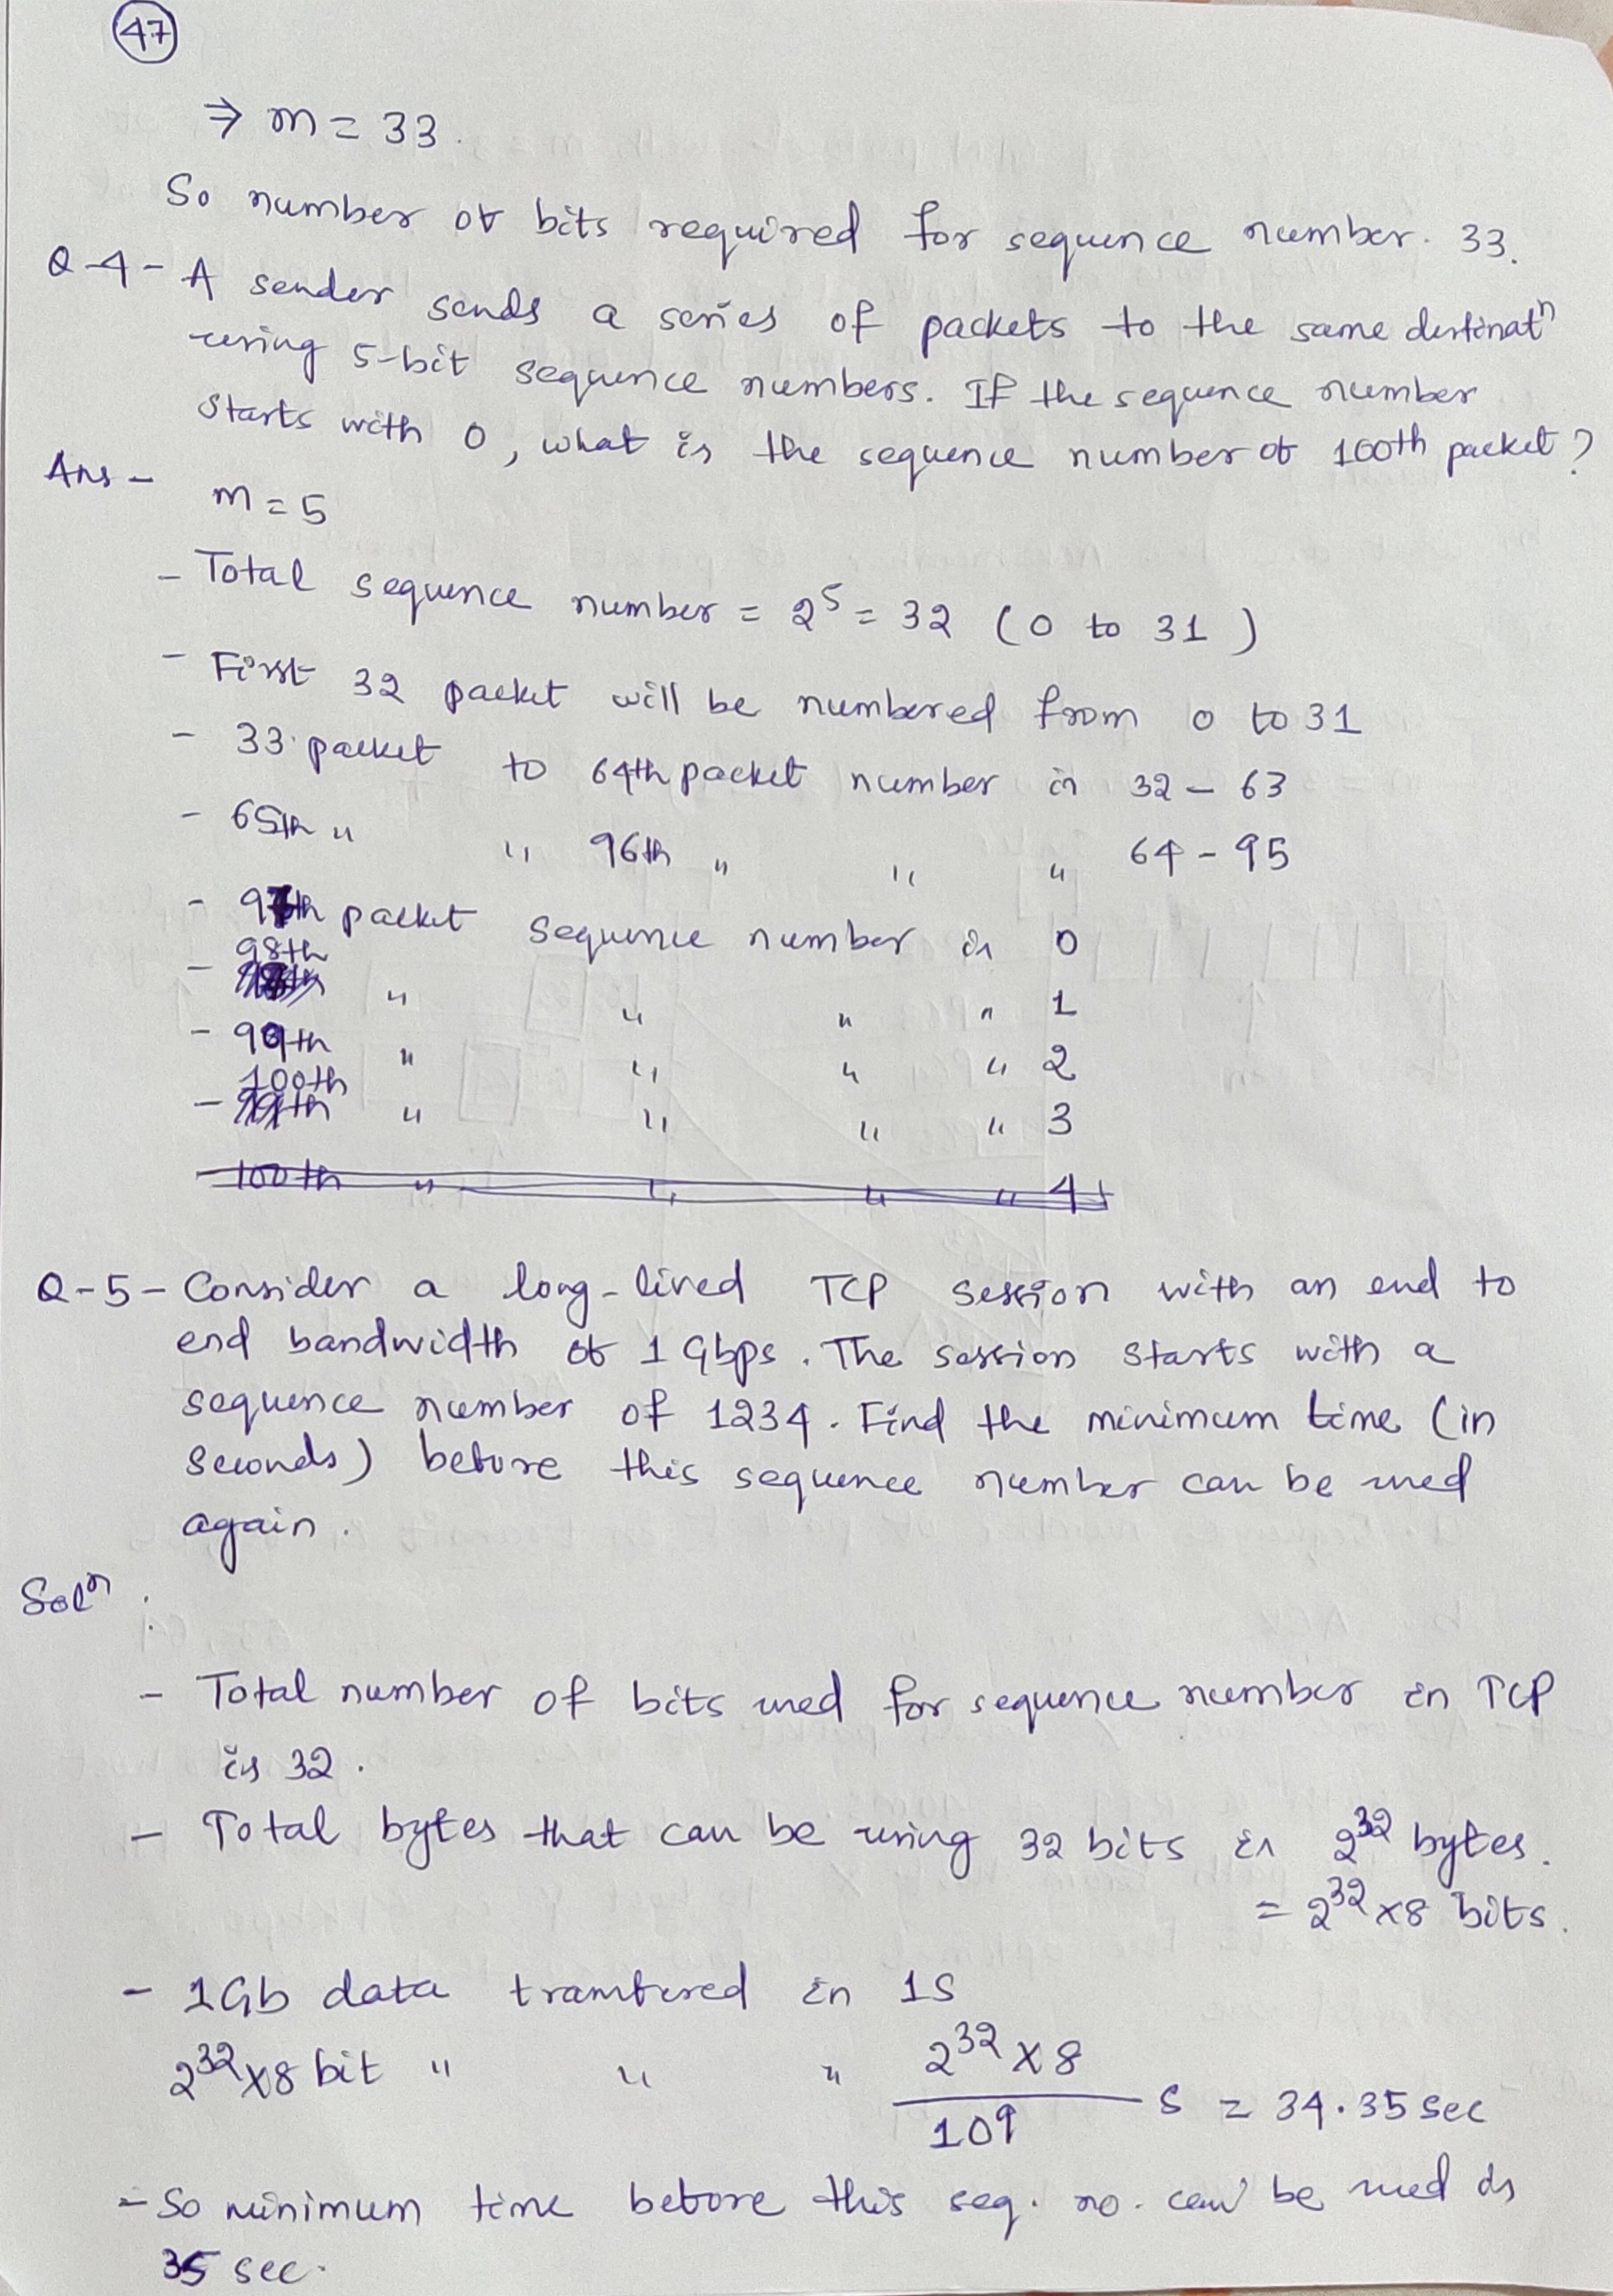 47
⇒ m = 33.
So number of bits required for sequence number. 33.
Q-4- A sender sends a series of packets to the same destinatⁿ
using 5-bit sequence numbers. If the sequence number
starts with 0, what is the sequence number of 100th packet?
Ans - m = 5
- Total sequence number = 2⁵ = 32 (0 to 31)
- First 32 packet will be numbered from 0 to 31
- 33 packet to 64th packet number is 32 - 63
- 65th " " 96th " " " 64 - 95
- 97th packet sequence number is 0
- 98th " " " " 1
- 99th " " " " 2
- 100th " " " " 3
- 100th " " " " 4
Q-5- Consider a long-lived TCP session with an end to
end bandwidth of 1 Gbps. The session starts with a
sequence number of 1234. Find the minimum time (in
seconds) before this sequence number can be used
again.
Solⁿ :
- Total number of bits used for sequence number in TCP
is 32.
- Total bytes that can be using 32 bits is 2³² bytes.
= 2³² x8 bits.
- 1Gb data transfered in 1S
2³²x8 bit " " " 2³² x 8 / 10⁹ s = 34.35 sec
- So minimum time before this seq. no. can be used is
35 sec.